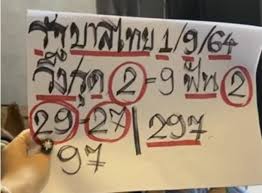 รัฐบาลไทย 1/9/64
วิ่งรูด 2-9 ฟัน 2
29-27 | 297
97